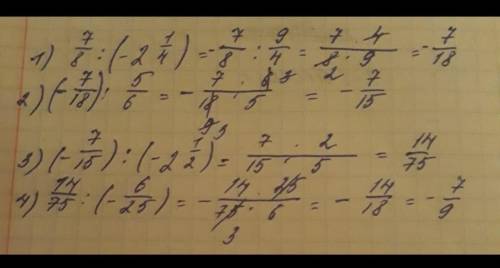 1) 7/8 : (-2 1/4) = -7/8 : 9/4 = 7 · 4 / 8 · 9 = -7/18
2
2) (-7/18) : 5/6 = -7 · 6 3 / 18 · 5 = -7/15
9 3
3) (-7/15) : (-2 1/2) = 7 · 2 / 15 · 5 = 14/75
4) 14/75 : (-6/25) = -14 · 25 / 75 · 6 = -14/18 = -7/9
3